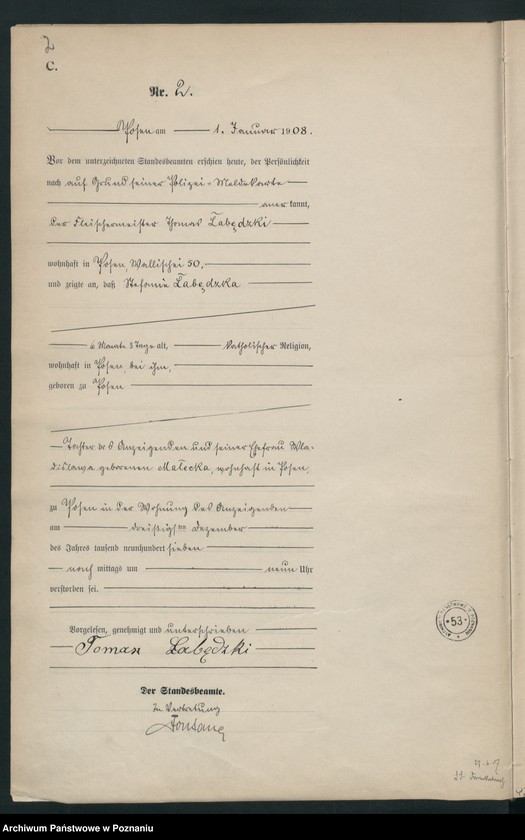 2
C.
Nr. 2.
Posen am 1. Januar 1908.
Vor dem unterzeichneten Standesbeamten erschien heute, der Persönlichkeit
nach auf Grund seiner Polizei-Meldekarte
anerkannt,
der Fleischermeister Thomas Łabędzki
wohnhaft in Posen, Wallischei 50,
und zeigte an, daß Stefania Łabędzka
6 Monate 3 Tage alt, katholischer Religion,
wohnhaft in Posen, bei ihm,
geboren zu Posen
Tochter des Anzeigenden und seiner Ehefrau Wla-
dislawa geborenen Małecka, wohnhaft in Posen,
zu Posen in der Wohnung des Anzeigenden
am dreißigsten Dezember
des Jahres tausend neunhundert sieben
nachmittags um neun Uhr
verstorben sei.
Vorgelesen, genehmigt und unterschrieben
Toman Łabędzki
Der Standesbeamte.
In Vertretung
53
Archiwum Państwowe w Poznaniu